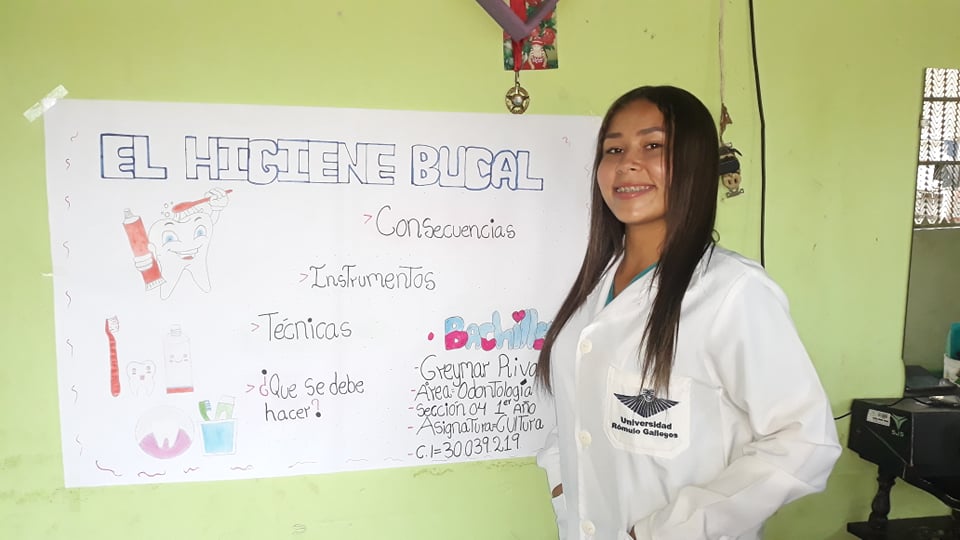 EL HIGIENE BUCAL
>Consecuencias
>Instrumentos
>Técnicas
>¿Que se debe
hacer?
-Greymar
-Area: Odontología
-Sección 04 1er Año
-Asignatura:Cultura
-C.I=30039.219
Universidad
Rómulo Gallegos
SJS